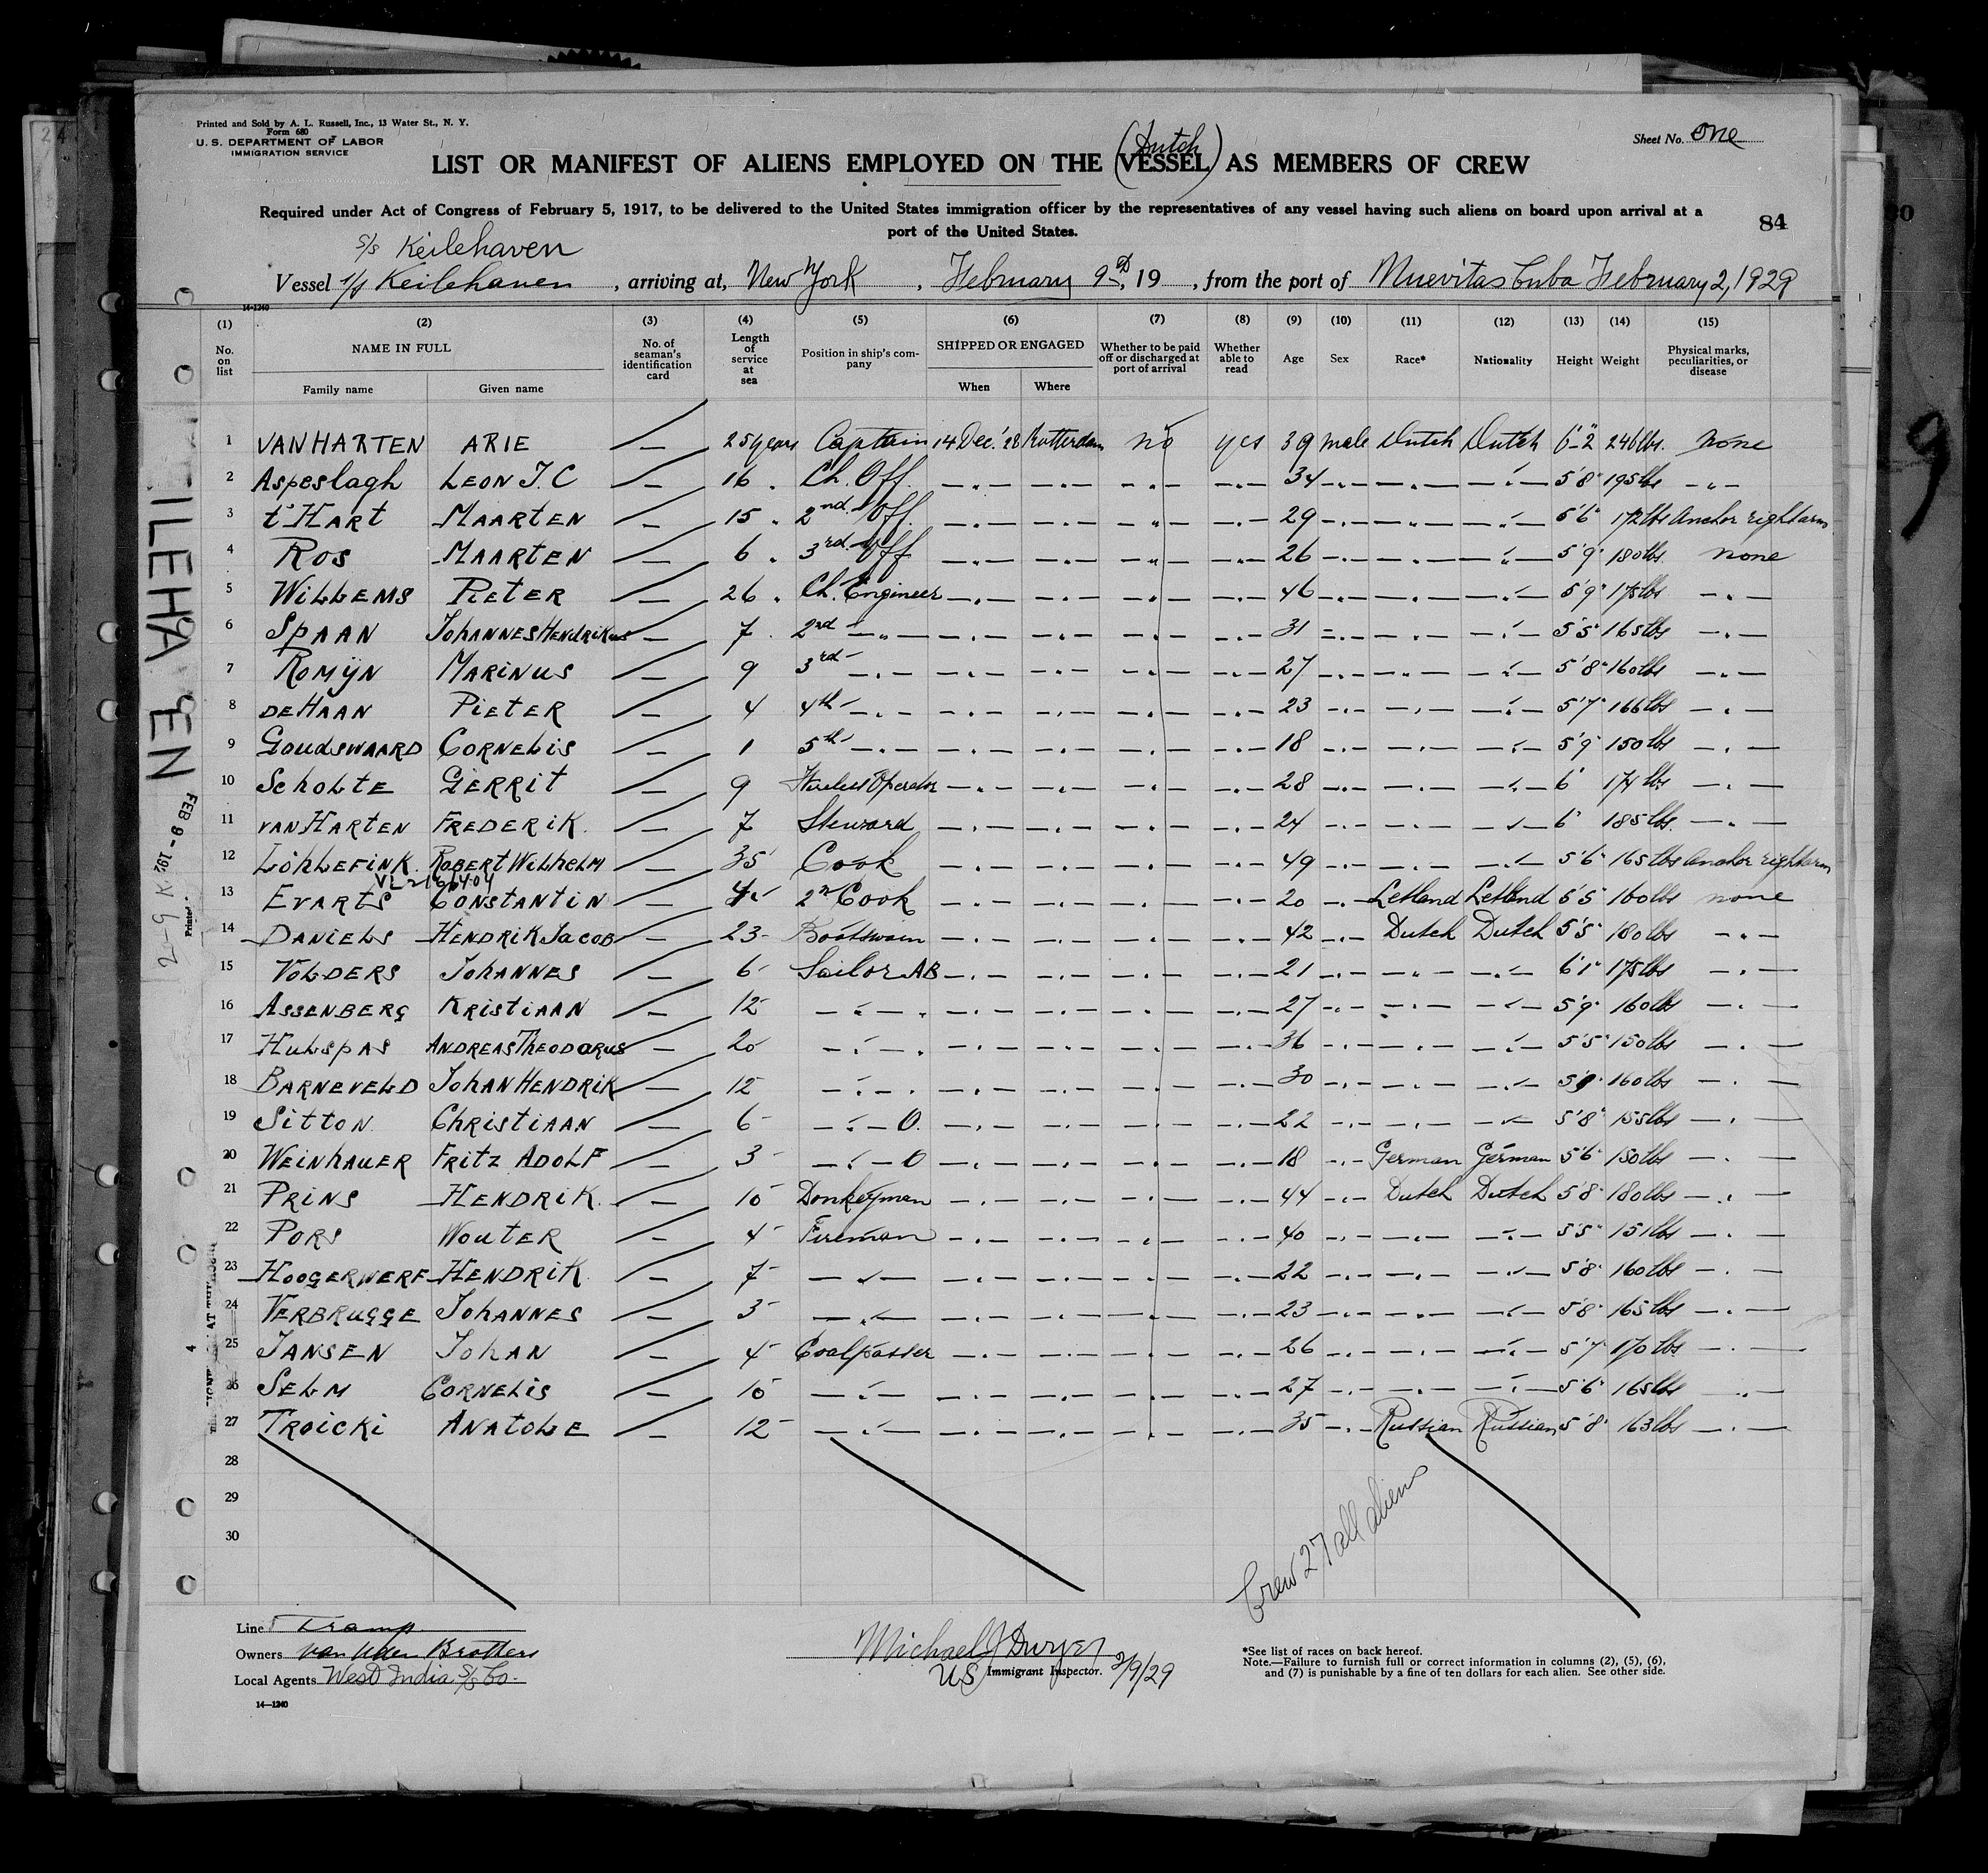 Printed and Sold by A. L. Russell, Inc., 13 Water St., N. Y.
Form 680
U. S. DEPARTMENT OF LABOR
IMMIGRATION SERVICE
Sheet No. One
(Dutch)
LIST OR MANIFEST OF ALIENS EMPLOYED ON THE VESSEL AS MEMBERS OF CREW
Required under Act of Congress of February 5, 1917, to be delivered to the United States immigration officer by the representatives of any vessel having such aliens on board upon arrival at a
port of the United States.
84
S/S Keilehaven
Vessel S/S Keilehaven, arriving at, New York, February 9th, 19 , from the port of Nuevitas Cuba February 2, 1929
14-1240
(1) (2) (3) (4) (5) (6) (7) (8) (9) (10) (11) (12) (13) (14) (15)
No. on list NAME IN FULL Family name Given name No. of seaman's identification card Length of service at sea Position in ship's company SHIPPED OR ENGAGED When Where Whether to be paid off or discharged at port of arrival Whether able to read Age Sex Race* Nationality Height Weight Physical marks, peculiarities, or disease
1 VAN HARTEN ARIE — 25 years Captain 14 Dec. '28 Rotterdam no yes 39 male Dutch Dutch 6'-2" 246 lbs. none
2 Aspeslagh LEON J. C — 16 " Ch. Off. — " — — " — — " — — " — 34 — " — — " — — " — 5'8" 195 lbs — " —
3 t'HART MAARTEN — 15 " 2nd Off. — " — — " — — " — — " — 29 — " — — " — — " — 5'6" 172 lbs Anchor right arm
4 ROS MAARTEN — 6 " 3rd Off — " — — " — — " — — " — 26 — " — — " — — " — 5'9" 180 lbs. none
5 WILLEMS PIETER — 26 " Ch. Engineer — " — — " — — " — — " — 46 — " — — " — — " — 5'9" 175 lbs — " —
6 SPAAN JOHANNES HENDRIKUS — 7 " 2nd — " — — " — — " — — " — — " — 31 — " — — " — — " — 5'5" 165 lbs — " —
7 ROMIJN MARINUS — 9 3rd — " — — " — — " — — " — — " — 27 — " — — " — — " — 5'8" 160 lbs — " —
8 DE HAAN PIETER — 4 4th — " — — " — — " — — " — — " — 23 — " — — " — — " — 5'7" 166 lbs — " —
9 GOUDSWAARD CORNELIS — 1 5th — " — — " — — " — — " — — " — 18 — " — — " — — " — 5'9" 150 lbs — " —
10 SCHOLTE GERRIT — 9 Wireless Operator — " — — " — — " — — " — 28 — " — — " — — " — 6' 174 lbs. — " —
11 VAN HARTEN FREDERIK. — 7 Steward — " — — " — — " — — " — 24 — " — — " — — " — 6' 185 lbs. — " —
12 LÖHLEFINK ROBERT WILHELM — 35 Cook — " — — " — — " — — " — 49 — " — — " — — " — 5'6" 165 lbs Anchor right arm
13 EVARTS CONSTANTIN — 4 2n Cook — " — — " — — " — — " — 20 — " — Letland Letland 5'5 160 lbs none
14 DANIELS HENDRIK JACOB — 23 Bootswain — " — — " — — " — — " — 42 — " — Dutch Dutch 5'5" 180 lbs — " —
15 VOLDERS JOHANNES — 6 Sailor AB — " — — " — — " — — " — 21 — " — — " — — " — 6'1" 175 lbs — " —
16 ASSENBERG KRISTIAAN — 12 — " — — " — — " — — " — — " — 27 — " — — " — — " — 5'9" 160 lbs — " —
17 HULSPAS ANDREAS THEODORUS — 20 — " — — " — — " — — " — — " — 36 — " — — " — — " — 5'5" 150 lbs — " —
18 BARNEVELD JOHAN HENDRIK — 12 — " — — " — — " — — " — — " — 30 — " — — " — — " — 5'9" 160 lbs — " —
19 SITTON CHRISTIAAN — 6 — " — O. — " — — " — — " — — " — 22 — " — — " — — " — 5'8" 155 lbs — " —
20 WEINHAUER FRITZ ADOLF — 3 — " — O — " — — " — — " — — " — 18 — " — German German 5'6" 150 lbs — " —
21 PRINS HENDRIK. — 10 Donkeyman — " — — " — — " — — " — 44 — " — Dutch Dutch 5'8" 180 lbs — " —
22 PORS WOUTER — 4 Fireman — " — — " — — " — — " — 40 — " — — " — — " — 5'5" 151 lbs — " —
23 HOOGERWERF HENDRIK. — 7 — " — — " — — " — — " — — " — 22 — " — — " — — " — 5'8" 160 lbs — " —
24 VERBRUGGE JOHANNES — 3 — " — — " — — " — — " — — " — 23 — " — — " — — " — 5'8" 165 lbs — " —
25 JANSEN JOHAN — 4 Coalpasser — " — — " — — " — — " — 26 — " — — " — — " — 5'7" 170 lbs — " —
26 SELM CORNELIS — 10 — " — — " — — " — — " — — " — 27 — " — — " — — " — 5'6" 165 lbs — " —
27 TROICKI ANATOLE — 12 — " — — " — — " — — " — — " — 35 — " — Russian Russian 5'8" 163 lbs — " —
28
29
30
Crew 27 all aliens
Line Tramp
Owners van Uden Brothers
Local Agents West India S/S Co.
14—1240
Michael J Dwyer
US Immigrant Inspector. 2/9/29
*See list of races on back hereof.
Note.—Failure to furnish full or correct information in columns (2), (5), (6),
and (7) is punishable by a fine of ten dollars for each alien. See other side.
ILEHA EN
FEB 9 - 192
9